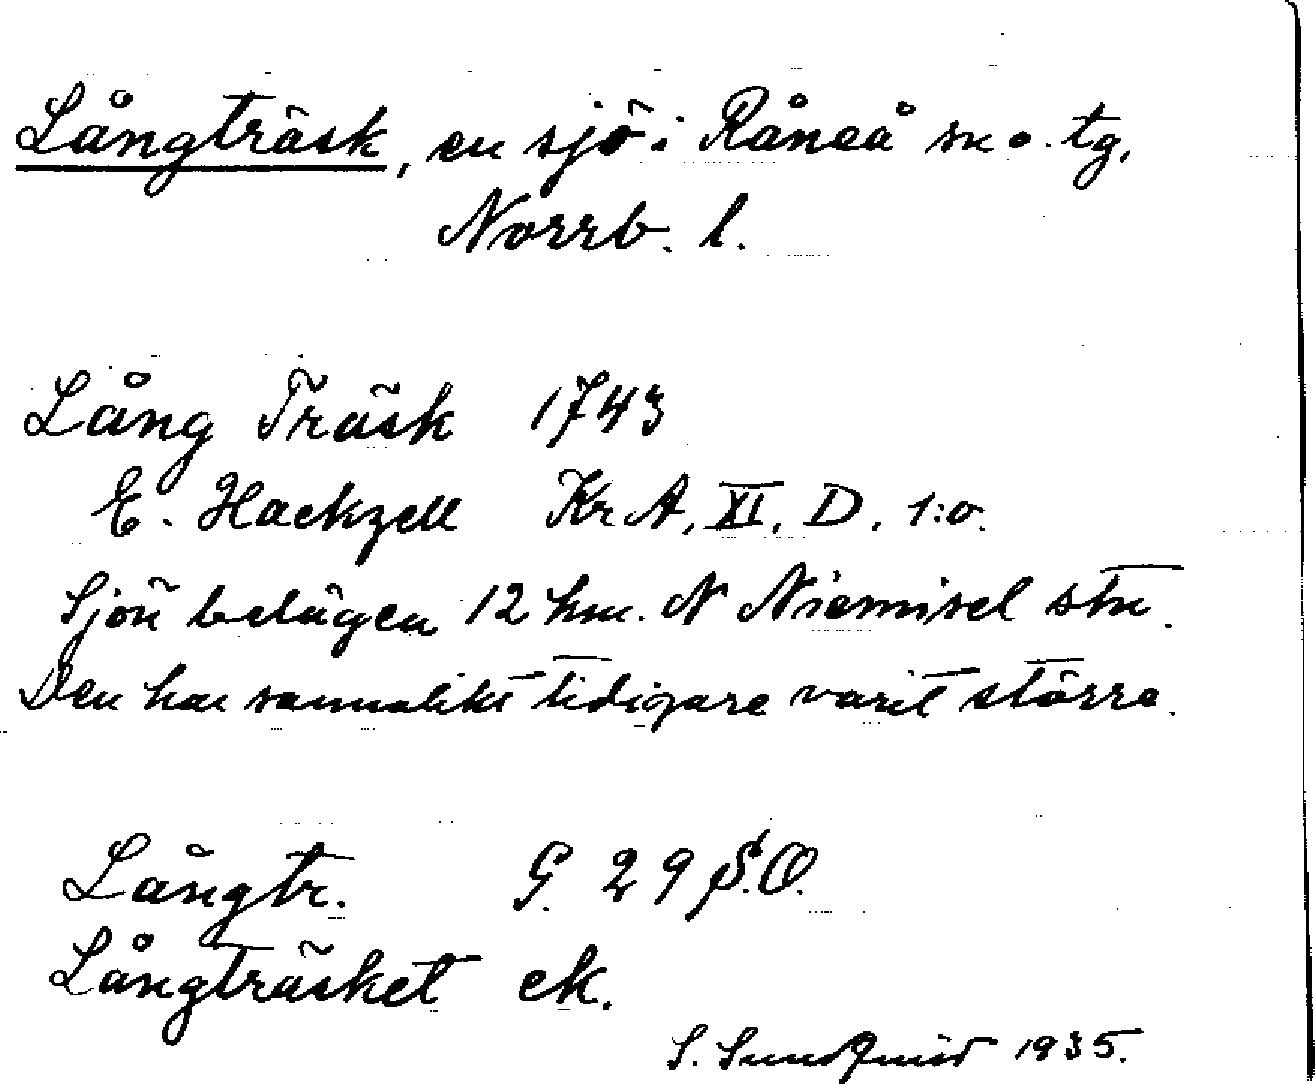 Långträsk, en sjö i Råneå sn o. tg,
Norrb. l.
Lång Träsk 1743
E. Hackzell Kr A, XI, D. 1:o.
Sjön belägen 12 km. N Niemisel stn.
Den har sannolikt tidigare varit större.
Långtr. G. 29 S.O.
Långträsket ek.
S. Sundqvist 1935.